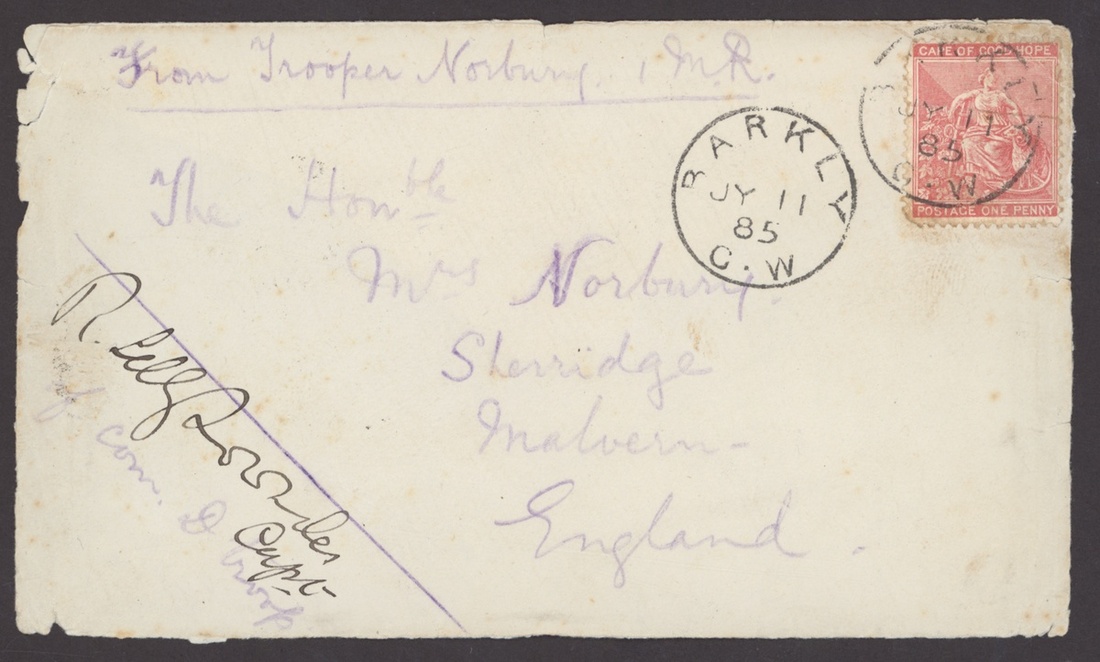 From Trooper Norbury. 1 M.R.
CAPE OF GOOD HOPE
POSTAGE ONE PENNY
JY 11
85
G.W
BARKLY
JY 11
85
G.W
The Honble
Mrs Norbury.
Sherridge
Malvern-
England.
R.
Capt
Com. D Troop